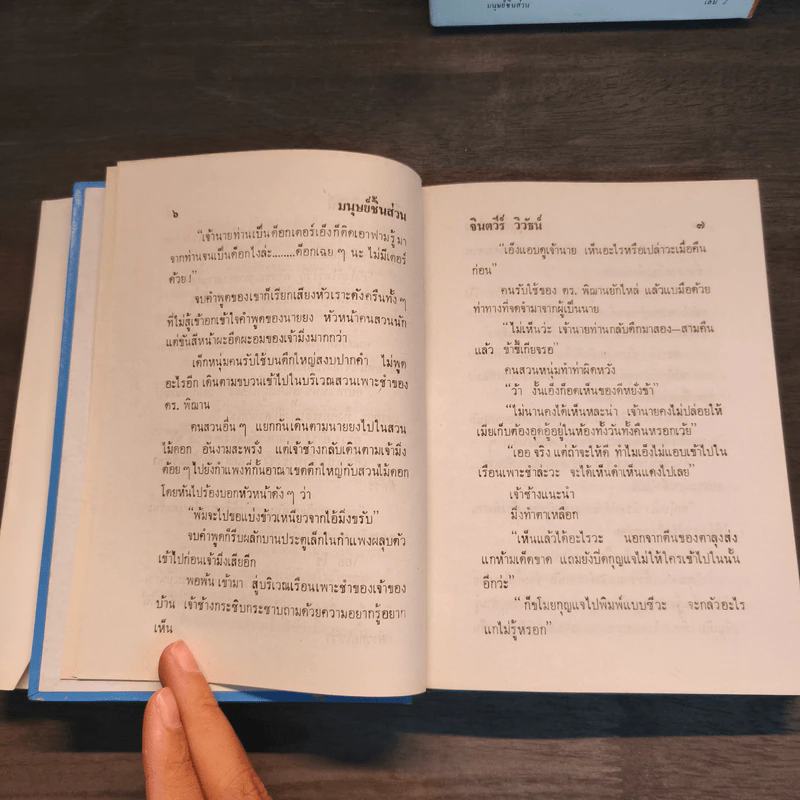 มนุษย์ชิ้นส่วน
เล่ม ๒
๖ มนุษย์ชิ้นส่วน
“เจ้านายท่านเป็นด็อกเตอร์เอ็งก็คิดเอาฟามรู้มา
จากท่านจนเป็นด็อกไงล่ะ........ด็อกเฉย ๆ นะ ไม่มีเตอร์
ด้วย !”
จบคำพูดของเขาก็เรียกเสียงหัวเราะดังครืนทั้ง ๆ
ที่ไม่สู้เข้าอกเข้าใจคำพูดของนายยง หัวหน้าคนสวนนัก
แต่ขันสีหน้าผะอืดผะอมของเจ้ามิ่งมากกว่า
เด็กหนุ่มคนรับใช้บนตึกใหญ่สงบปากคำ ไม่พูด
อะไรอีก เดินตามขบวนเข้าไปในบริเวณสวนเพาะชำของ
ดร. พิฌาน
คนสวนอื่น ๆ แยกกันเดินตามนายยงไปในสวน
ไม้ดอก อันงามสะพรั่ง แต่เจ้าช้างกลับเดินตามเจ้ามิ่ง
ต้อย ๆ ไปยังกำแพงที่กั้นอาณาเขตตึกใหญ่กับสวนไม้ดอก
โดยหันไปร้องบอกหัวหน้าดัง ๆ ว่า
“พ้มจะไปขอแบ่งข้าวเหนียวจากไอ้มิ่งขรับ”
จบคำพูดก็รีบผลักบานประตูเล็กในกำแพงผลุบตัว
เข้าไปก่อนเจ้ามิ่งเสียอีก
พอพ้น เข้ามา สู่บริเวณเรือนเพาะชำของเจ้าของ
บ้าน เจ้าช้างกระซิบกระซาบถามด้วยความอยากรู้อยาก
เห็น
จินตวีร์ วิวัธน์ ๗
“เอ็งแอบดูเจ้านาย เห็นอะไรหรือเปล่าวะเมื่อคืน
ก่อน”
คนรับใช้ของ ดร. พิฌานยักไหล่ แล้วแบมือด้วย
ท่าทางที่จดจำมาจากผู้เป็นนาย
“ไม่เห็นว่ะ เจ้านายท่านกลับดึกมาสอง—สามคืน
แล้ว ข้าขี้เกียจรอ”
คนสวนหนุ่มทำท่าผิดหวัง
“ว้า งั้นเอ็งก็อดเห็นของดีหยั่งข้า”
“ไม่นานคงได้เห็นหละน่า เจ้านายคงไม่ปล่อยให้
เมียเก็บต้องอุดอู้อยู่ในห้องทั้งวันทั้งคืนหรอกเว้ย”
“เออ จริง แต่ถ้าจะให้ดี ทำไมเอ็งไม่แอบเข้าไปใน
เรือนเพาะชำล่ะวะ จะได้เห็นดำเห็นแดงไปเลย”
เจ้าช้างแนะนำ
มิ่งทำตาเหลือก
“เห็นแล้วได้อะไรวะ นอกจากตีนของตาลุงส่ง
แกห้ามเด็ดขาด แถมยังปิดกุญแจไม่ให้ใครเข้าไปในนั้น
อีกว่ะ”
“ก็ขโมยกุญแจไปพิมพ์แบบซีวะ จะกลัวอะไร
แกไม่รู้หรอก”